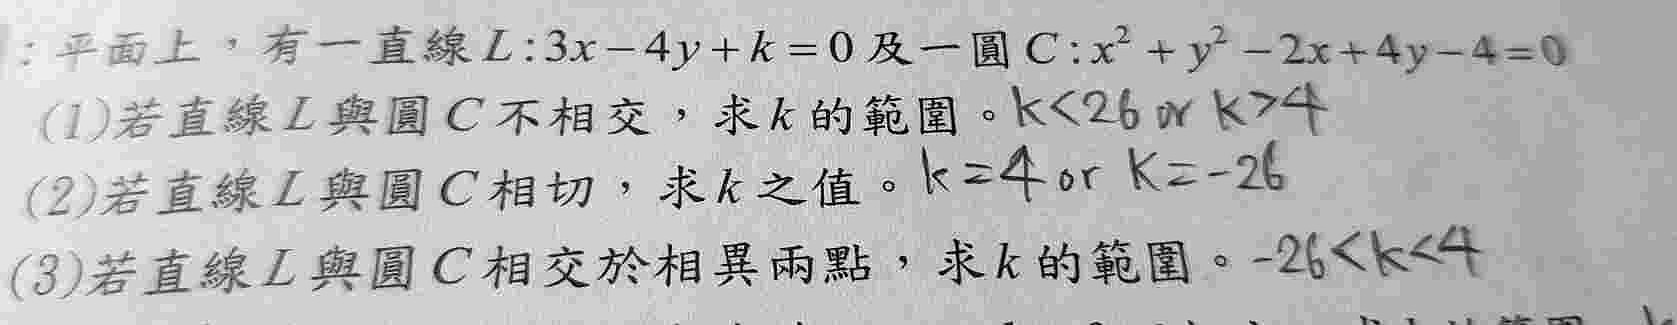 ：平面上，有一直線 L:3x－4y＋k＝0 及一圓 C:x²＋y²－2x＋4y－4＝0
(1)若直線 L 與圓 C 不相交，求 k 的範圍。k<26 or k>4
(2)若直線 L 與圓 C 相切，求 k 之值。k=4 or K=-26
(3)若直線 L 與圓 C 相交於相異兩點，求 k 的範圍。-26<k<4